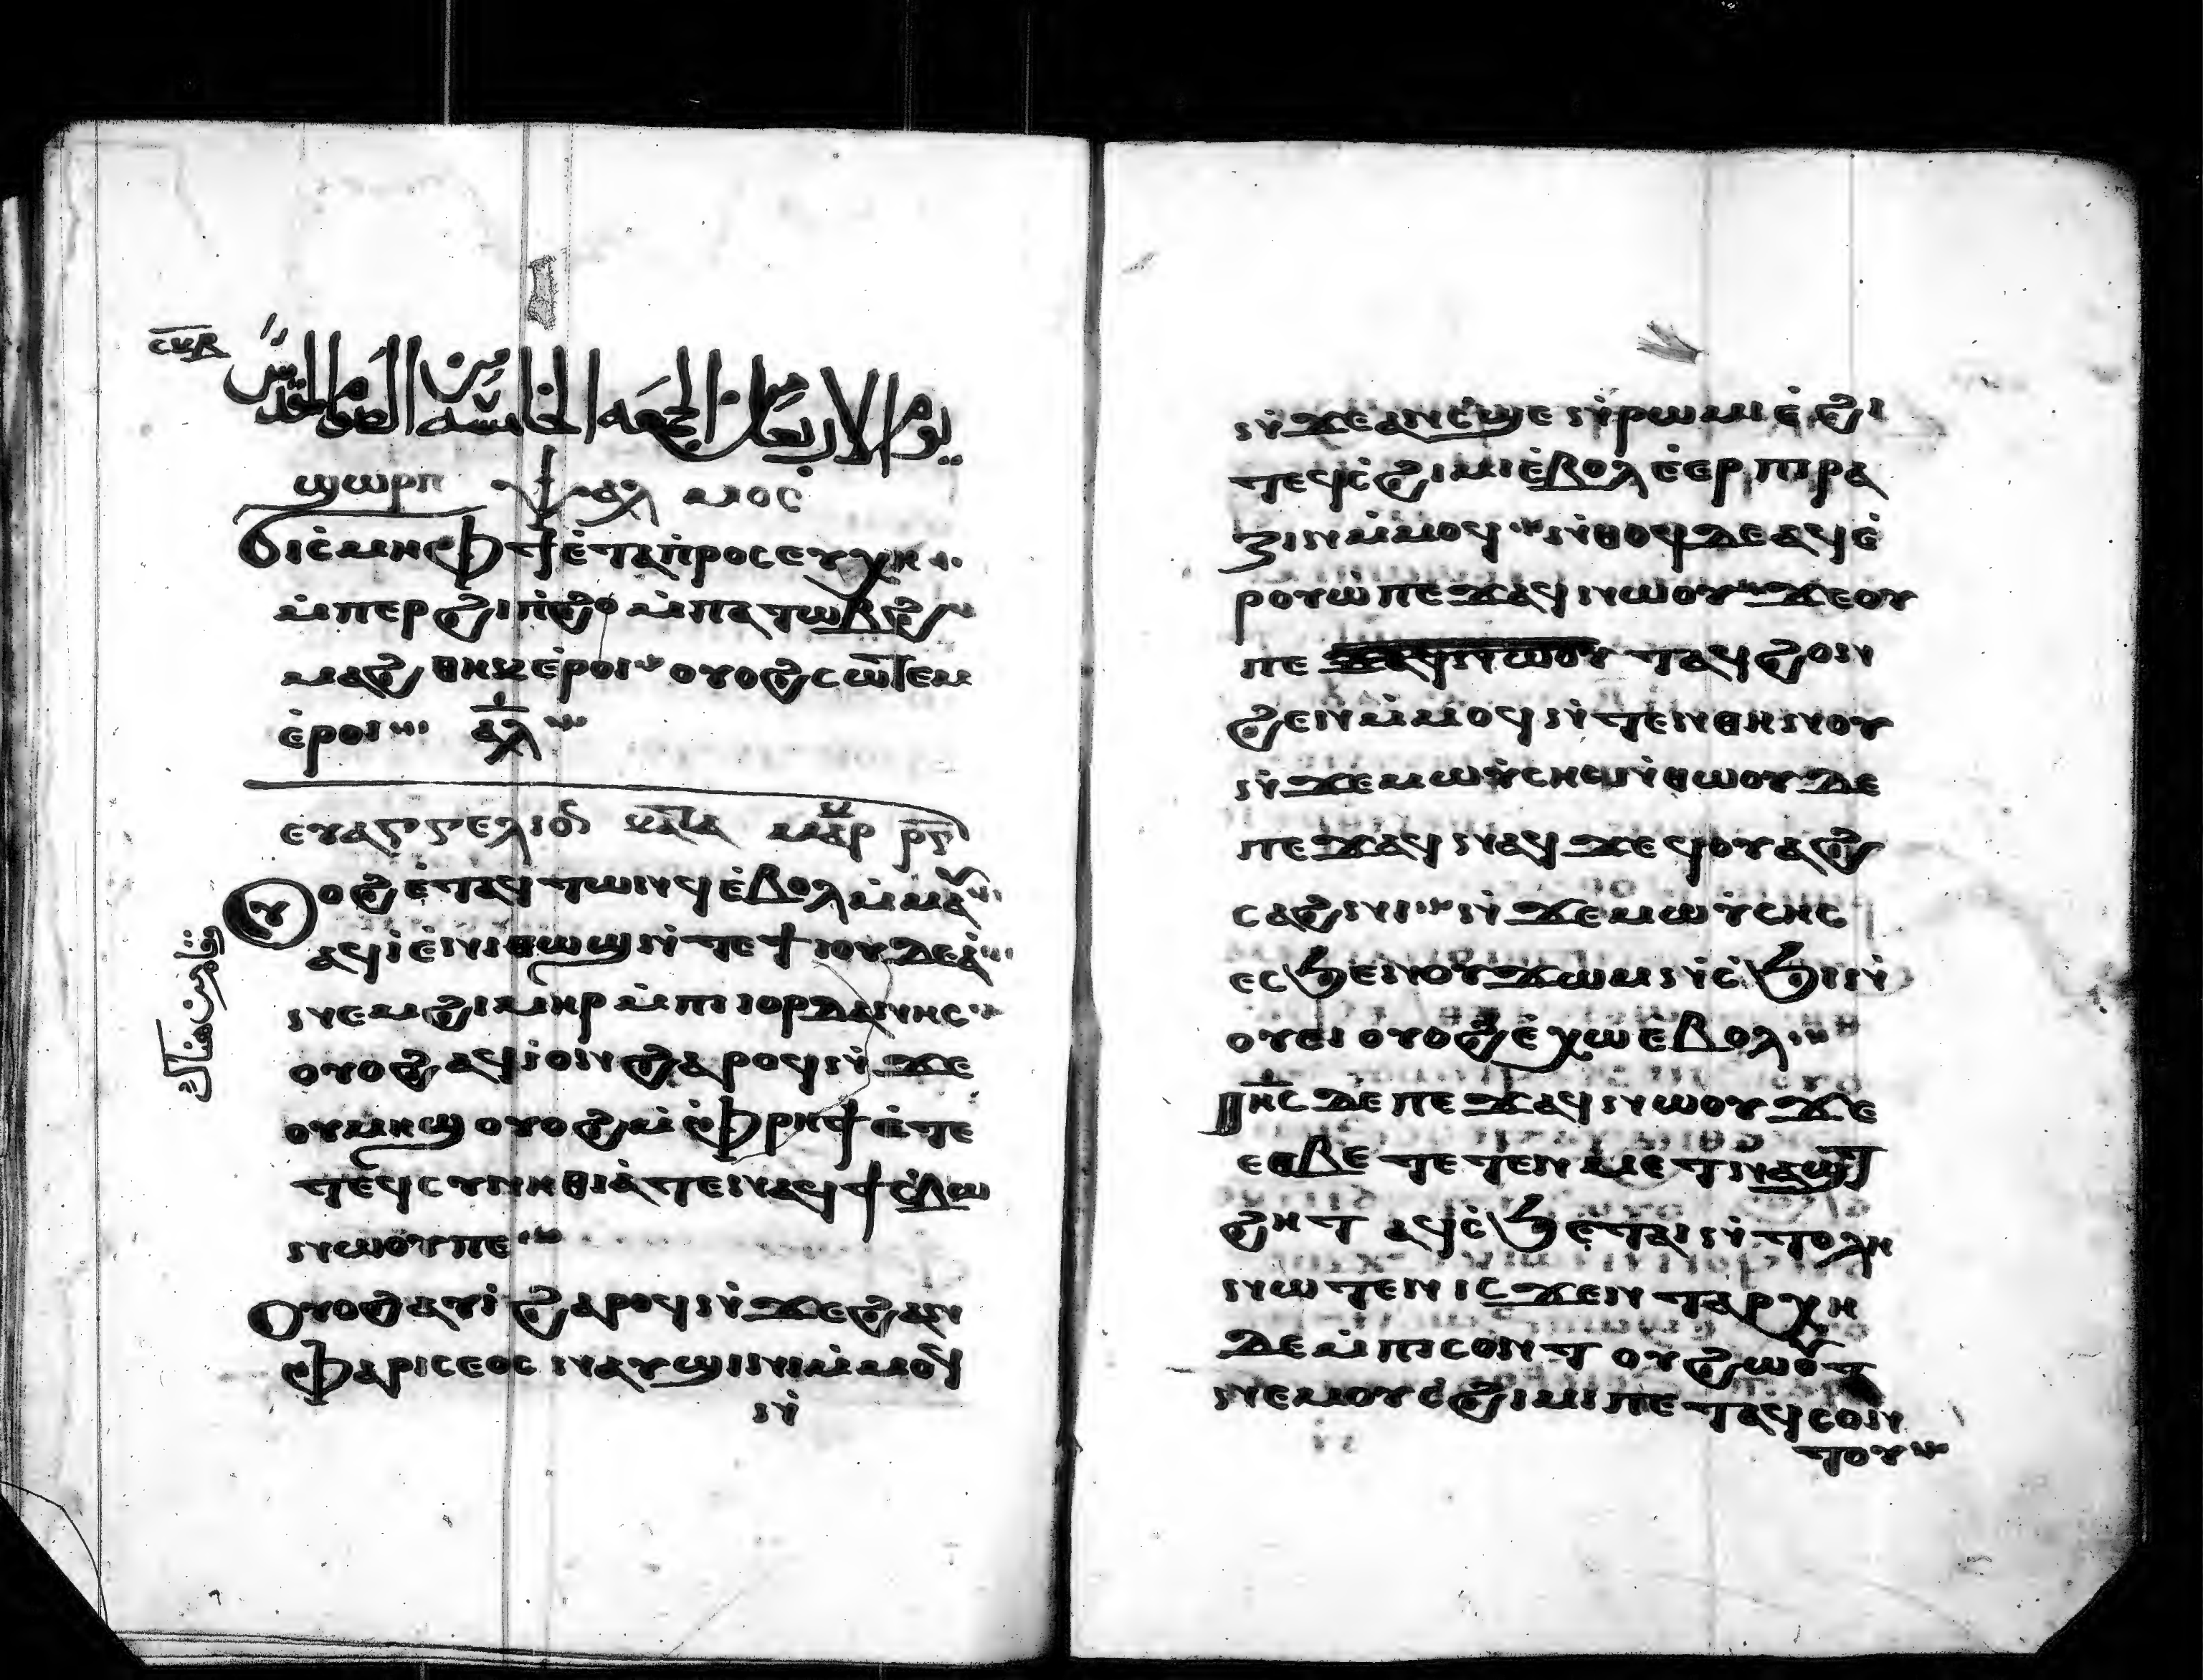 ⲥⲩⲃ
يوم الاربعا من الجمعه الخامسه من الصوم المقدس
ϣⲱⲣⲡ ⲯⲁⲗⲙⲟⲥ
ϭⲓⲥⲙⲏ ⲫϯ ⲉ̇ⲧⲁⲡ̇ⲣⲟⲥⲉⲩⲭⲏ
ⲙ̇ⲡⲉⲣϩⲓⲡ̇ϩⲟ ⲙ̇ⲡⲁⲧⲱⲃϩ
ⲙⲁϩⲑⲏⲕ ⲉ̇ⲣⲟⲓ ⲟⲩⲟϩ ⲥⲱⲧⲉⲙ
ⲉ̇ⲣⲟⲓ ⲁⲗ
ⲉⲩⲁⲅⲅⲉⲗⲓⲟ ⲕⲁⲧⲁ ⲙⲁⲣ ⲣⲅ
ⲩⲟϩ ⲉ̇ⲧⲁϥⲧⲱⲛϥ ⲉ̇ⲃⲟⲗ ⲙ̇ⲙⲁⲩ
ⲁϥⲓ̇ ⲉ̇ⲛⲓⲑⲱϣ ⲛ̇ⲧⲉ ϯⲓⲟⲩⲇⲉⲁ̇
فقام من هناك
ⲛⲉⲙ ϩⲓⲙⲏⲣ ⲙ̇ⲡⲓⲓⲟⲣⲇⲁⲛⲏⲥ
ⲟⲩⲟϩ ⲁϥⲓ̇ ⲟⲛ ϩⲁⲣⲟϥ ⲛ̇ϫⲉ
ⲟⲩⲙⲏϣ ⲟⲩⲟϩ ⲙ̇ⲫⲣⲏϯ ⲉ̇ⲧⲉ
ⲧⲉϥⲥⲩⲛⲏⲑⲓⲁ̇ ⲧⲉ ⲛⲁϥϯⲥ̇ⲃⲱ
ⲛⲱⲟⲩ ⲡⲉ
Ⲟⲩⲟϩ ⲁⲩⲓ̇ ϩⲁⲣⲟϥ ⲛ̇ϫⲉ ϩⲁⲛ
ⲫⲁⲣⲓⲥⲉⲟⲥ ⲛⲁⲩϣⲓⲛⲓ ⲙ̇ⲙⲟϥ
ⲛ̇
ⲛ̇ϫⲉ ⲁⲛ ⲥ̇ϣⲉ ⲛ̇ⲣⲱⲙⲓ ⲉ̇ϩⲓ
ⲧⲉϥⲥ̇ϩⲓⲙⲓ ⲉ̇ⲃⲟⲗ ⲉ̇ⲉⲣⲡⲓⲣⲁ
ⲍⲓⲛ ⲙ̇ⲙⲟϥ ⲛ̇ⲑⲟϥ ⲇⲉ ⲁϥⲉ̇
ⲣⲟⲩⲱ ⲡⲉϫⲁϥ ⲛⲱⲟⲩ ϫⲉ ⲟⲩ
ⲡⲉ ϫⲁϥⲛⲱⲟⲩ ⲧⲁϥϩⲟⲛ
ϩⲉⲛ ⲙ̇ⲙⲟϥ ⲛ̇ⲧⲉⲛⲑⲏⲛⲟⲩ
ⲛ̇ϫⲉ ⲙⲱⲩ̇ⲥⲏⲥ ⲛ̇ⲑⲱⲟⲩ ⲇⲉ
ⲡⲉϫⲁϥ ⲛⲁϥ ϫⲉ ϥⲟⲩⲁϩ
ⲥⲁϩⲛⲓ ⲛ̇ϫⲉ ⲙⲱⲩ̇ⲥⲏⲥ
ⲉⲥϧⲉ ⲛⲟⲩϫⲱⲙ ⲛ̇ⲥ̇ϧⲓ ⲛ̇
ⲟⲩⲉⲓ ⲟⲩⲟϩ ⲉ̇ⲭⲱ ⲉ̇ⲃⲟⲗ
Ⲓⲏⲥ ⲇⲉ ⲡⲉϫⲁϥ ⲛⲱⲟⲩ ϫⲉ
ⲉⲑⲃⲉ ⲧⲉⲧⲉⲛⲙⲉⲧⲛⲁϣⲧ
ϩⲏⲧ ⲁϥⲥ̇ϧⲉ ⲧⲁⲓ ⲛ̇ⲧⲟⲗⲏ
ⲛⲱⲧⲉⲛ ⲓⲥϫⲉⲛ ⲧⲁⲣⲭⲏ
ⲇⲉ ⲙ̇ⲡⲓⲥⲟⲛⲧ ⲟⲩϩⲱⲟⲩⲧ
ⲛⲉⲙ ⲟⲩⲥ̇ϩⲓⲙⲓ ⲡⲉⲧⲁϥⲥⲟⲛ
ⲧⲟⲩ